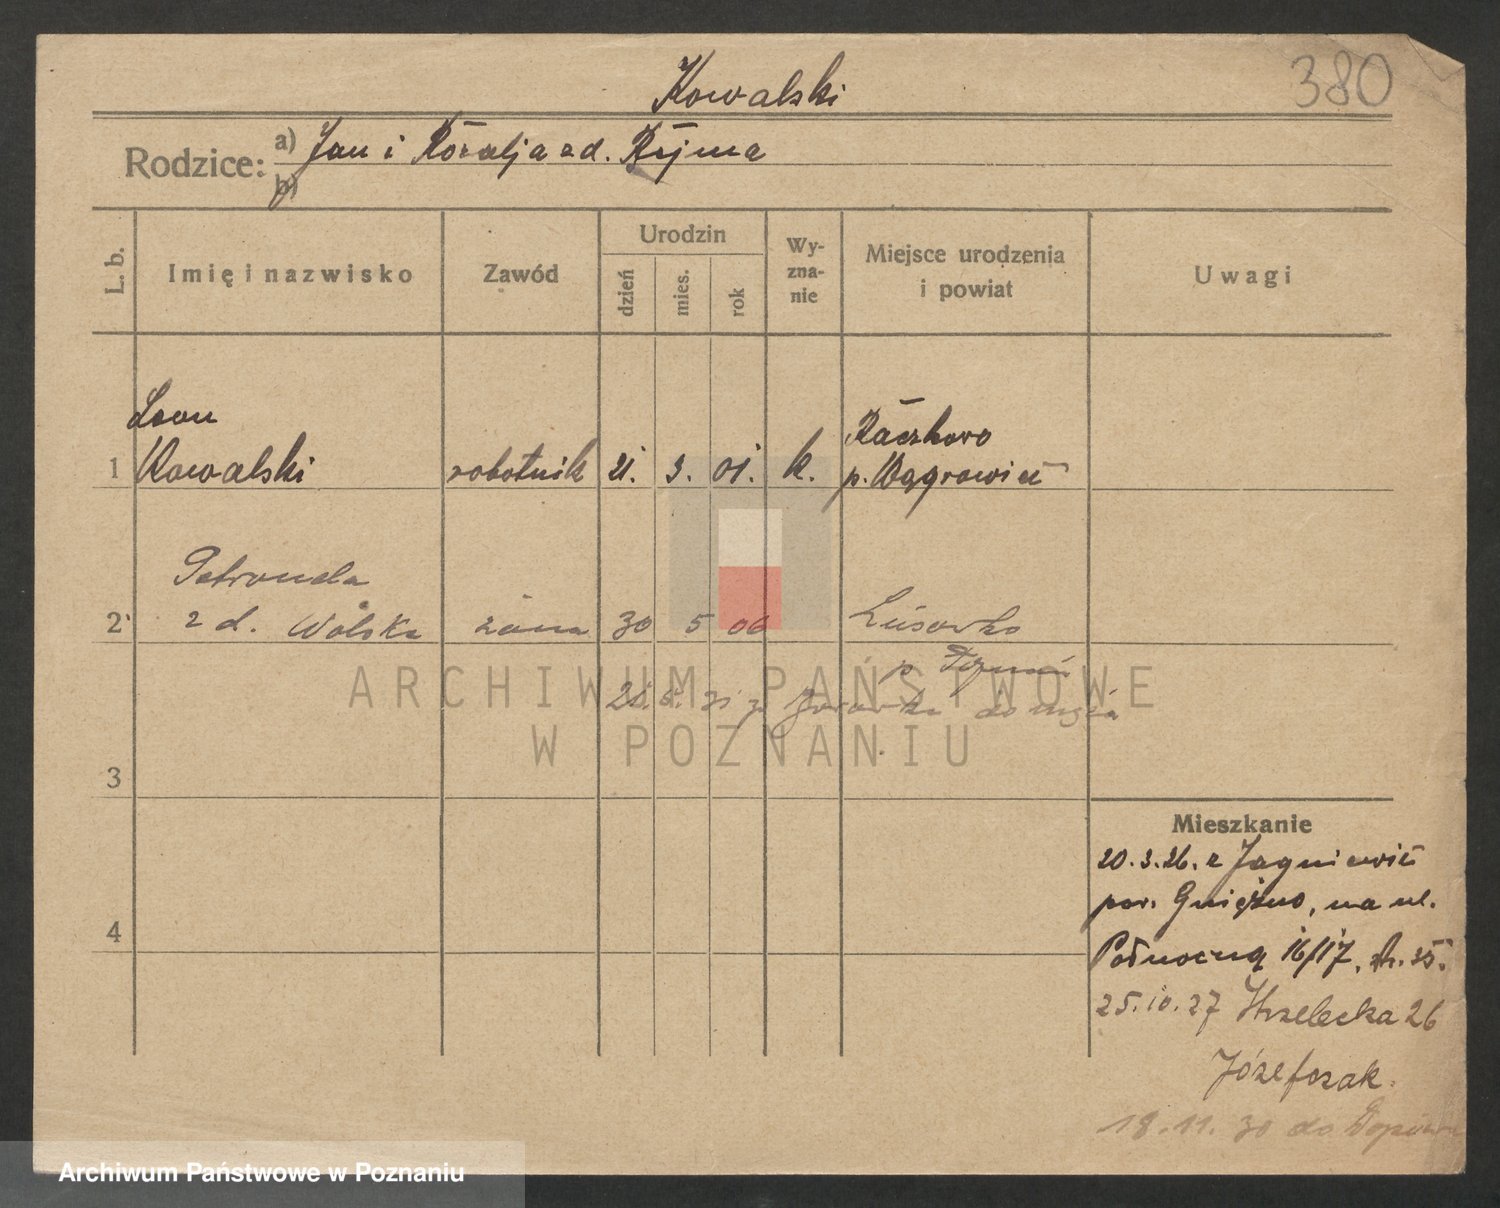 Kowalski
380
Rodzice: a) Jan i Rozalja z d. Rejma
b)
L. b.
Imię i nazwisko
Zawód
Urodzin
dzień
mies.
rok
Wy-
zna-
nie
Miejsce urodzenia
i powiat
Uwagi
Leon
1 Kowalski robotnik 21. 3. 01. k.
Raczkowo
p. Wągrowiec
Petronela
2 z d. Wolska żona 30 5 06 Lusowko
p
21. 5. 31 z do
3
4
Mieszkanie
20.3.26. z Jagniewic
pow. Gniezno, na ul.
Północną 16/17,
25.10.27 Strzelecka 26
Józefczak.
18.11.30 do
ARCHIWUM PAŃSTWOWE
W POZNANIU
Archiwum Państwowe w Poznaniu